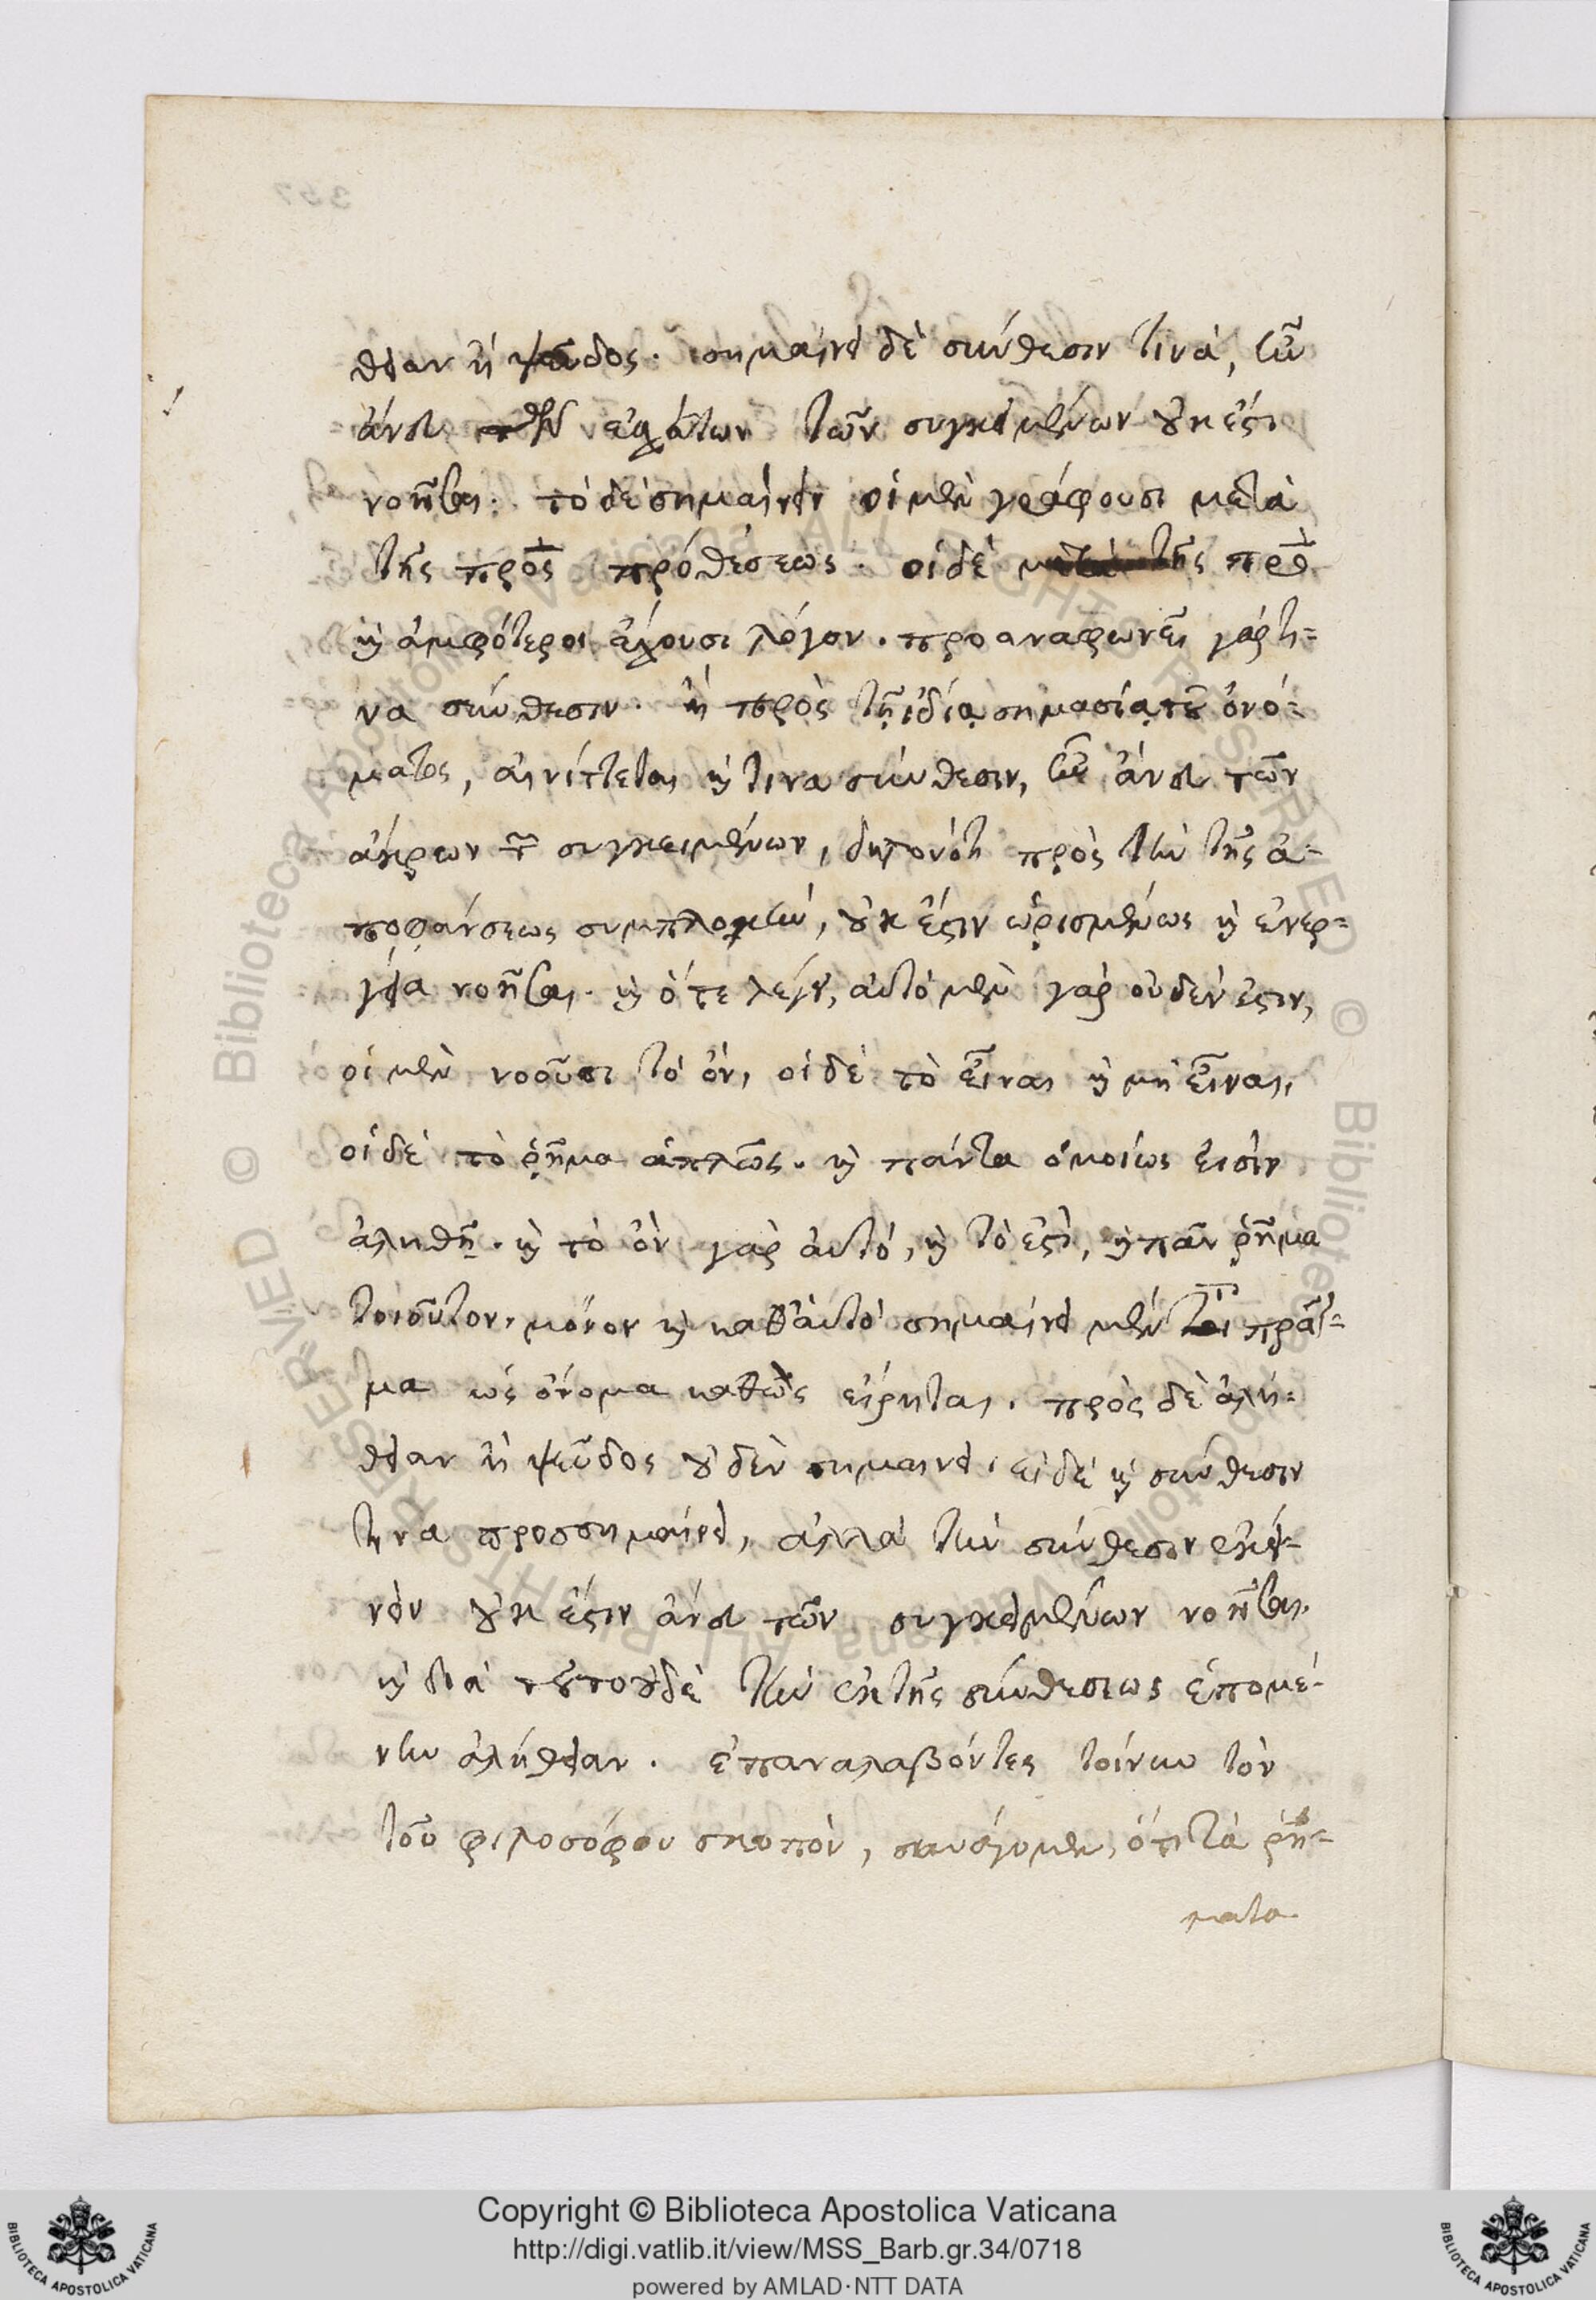 θειαν ἢ ψεῦδος. σημαίνει δὲ σύνθεσίν τινα, ἣν
ἄνευ τῶν ἐσχάτων τῶν συγκειμένων οὐκ ἔστι
νοῆσαι. τὸ δὲ σημαίνειν οἱ μὲν γράφουσι μετὰ
τῆς πρὸς προθέσεως. οἱ δὲ μετὰ τῆς πρὸ
καὶ ἀμφότεροι ἔχουσι λόγον. προαναφωνεῖ γάρ τι=
να σύνθεσιν. ἢ πρὸς τῇ ἰδίᾳ σημασίᾳ τοῦ ὀνό=
ματος, αἰνίττεται καί τινα σύνθεσιν, ἣν ἄνευ τῶν
ἄκρων τῶν συγκειμένων, δηλονότι πρὸς τὴν τῆς ἀ=
ποφάνσεως συμπλοκὴν, οὐκ ἔστιν ὡρισμένως καὶ ἐνερ=
γείᾳ νοῆσαι. καὶ ὅτε λέγει, αὐτὸ μὲν γὰρ οὐδέν ἐστιν,
οἱ μὲν νοοῦσι τὸ ὄν, οἱ δὲ τὸ εἶναι καὶ μὴ εἶναι,
οἱ δὲ τὸ ῥῆμα ἁπλῶς. καὶ πάντα ὁμοίως εἰσὶν
ἀληθῆ. καὶ τὸ ὂν γὰρ αὐτό, καὶ τὸ ἐστὶ, καὶ πᾶν ῥῆμα
τοιοῦτον. μόνον καὶ καθ' αὑτὸ σημαίνει μὲν τι πρᾶγ=
μα ὡς ὄνομα καθὼς εἴρηται. πρὸς δὲ ἀλή=
θειαν ἢ ψεῦδος οὐδὲν σημαίνει. εἰ δὲ καὶ σύνθεσιν
τινὰ προσσημαίνει, ἀλλὰ τὴν σύνθεσιν ἐκεί=
νην οὐκ ἔστιν ἄνευ τῶν συγκειμένων νοῆσαι.
καὶ διὰ τοῦτο οὐδὲ τὴν ἐκ τῆς συνθέσεως ἑπομέ=
νην ἀλήθειαν. ἐπαναλαβόντες τοίνυν τὸν
τοῦ φιλοσόφου σκοπὸν, συνάγομεν, ὅτι τὰ ῥή=
ματα
Copyright © Biblioteca Apostolica Vaticana
http://digi.vatlib.it/view/MSS_Barb.gr.34/0718
powered by AMLAD·NTT DATA